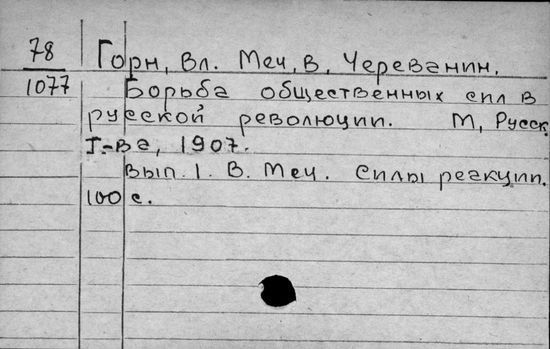 78
1077
Горн, Вл. Меч, В, Череванин.
Борьба общественных сил в
русской революции. М, Русск.
Т-ва, 1907.
вып. 1. В. Меч. Силы реакции.
100 с.